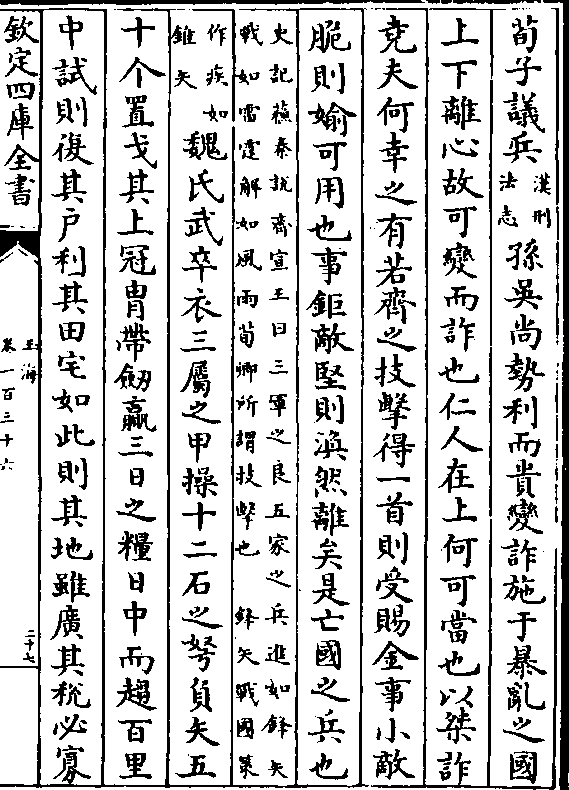 荀子議兵漢刑法志孫吳尚勢利而貴變詐施于暴亂之國
上下離心故可變而詐也仁人在上何可當也以桀詐
堯夫何幸之有若齊之技擊得一首則受賜金事小敵
脆則婾可用也事鉅敵堅則渙然離矣是亡國之兵也
史記蘇秦說齊宣王曰三軍之良五家之兵進如鋒矢
戰如雷霆解如風雨荀卿所謂技擊也 鋒矢戰國策
作疾如
錐矢
魏氏武卒衣三屬之甲操十二石之弩負矢五
十个置戈其上冠冑帶劒贏三日之糧日中而趨百里
中試則復其户利其田宅如此則其地雖廣其税必寡
欽定四庫全書
玉海
卷一百三十六
二十七